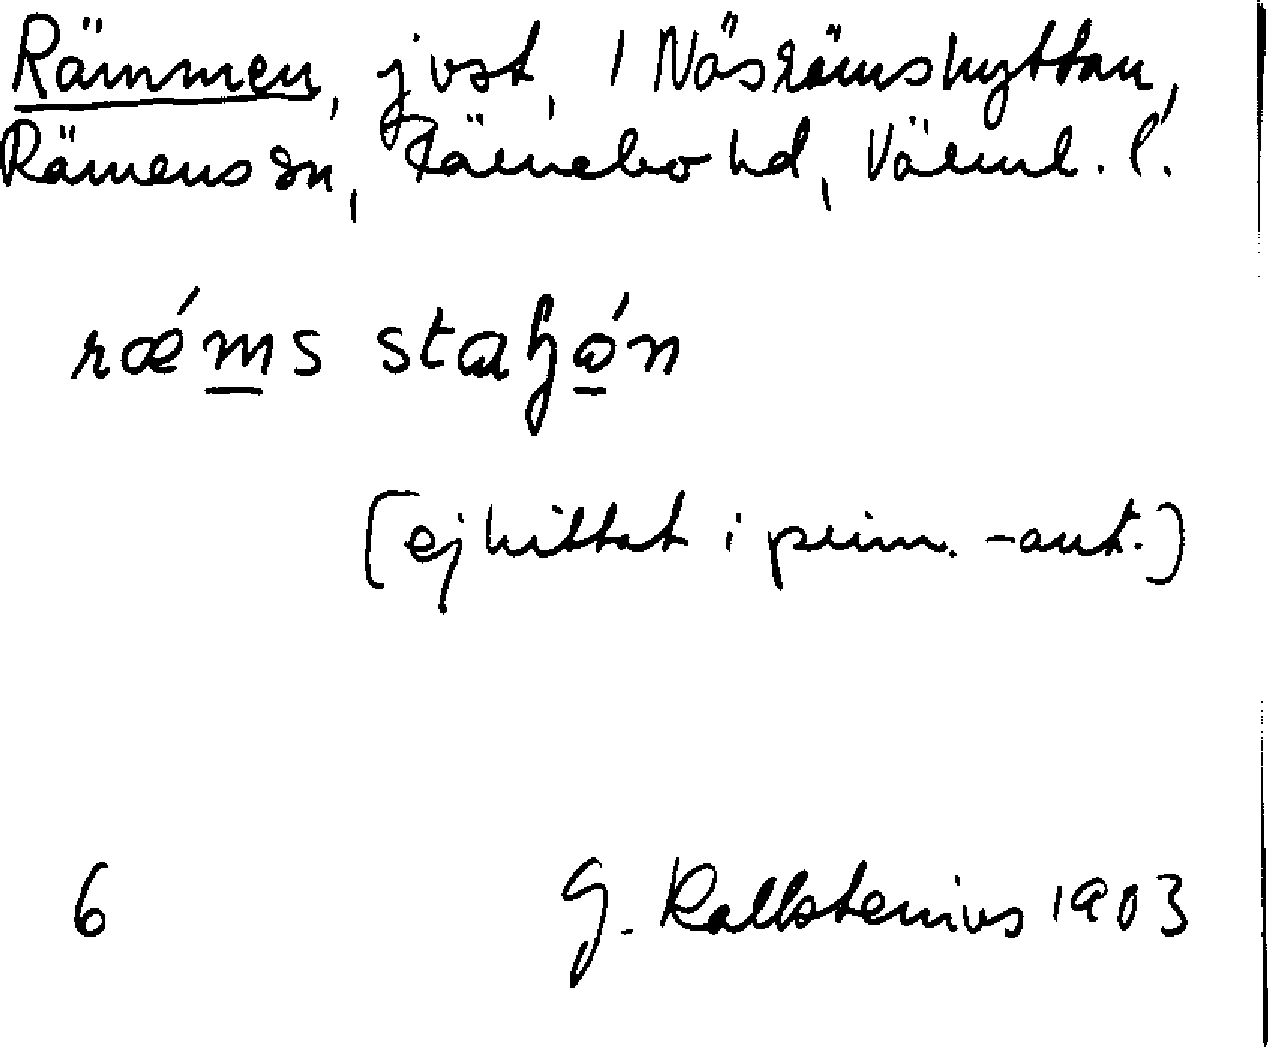 Rämmen, jvst, i Näsrämshyttan,
Rämens sn, Färnebo hd, Värml. l.
rǽms staꜧón
(ej hittat i prim. -ant.)
6 G. Kallstenius 1903